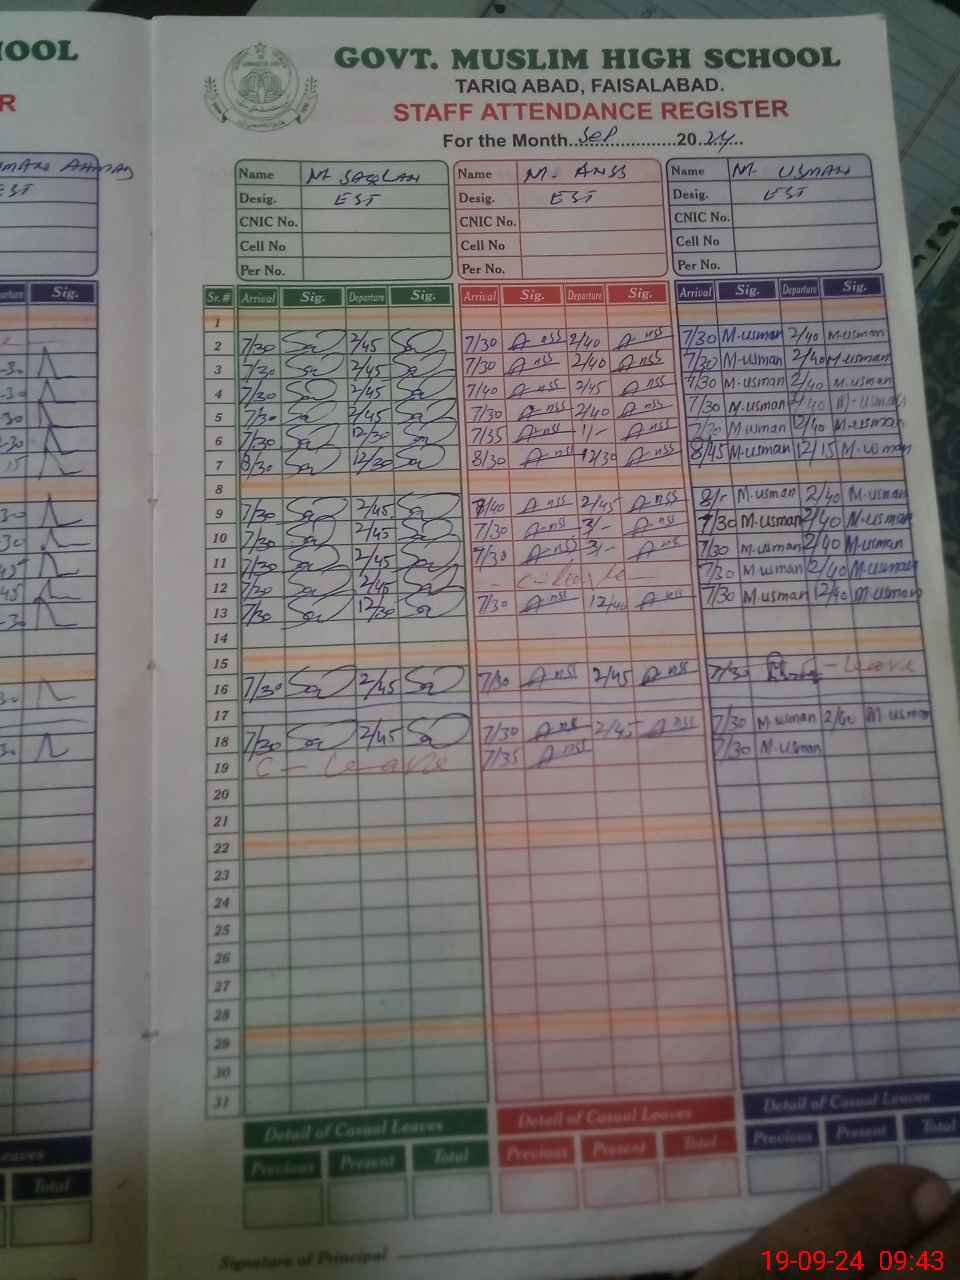 HOOL
GOVT. MUSLIM HIGH SCHOOL
TARIQ ABAD, FAISALABAD.
R
STAFF ATTENDANCE REGISTER
For the Month Sep 2024
Name M. SAQLAN Name M. ANSS Name M. USMAN
EST
Desig. EST Desig. EST Desig. EST
CNIC No. CNIC No. CNIC No.
Cell No Cell No Cell No
Per No. Per No. Per No.
Sig. Sr. # Arrival Sig. Departure Sig. Arrival Sig. Departure Sig. Arrival Sig. Departure Sig.
1
2 7/30 2/45 7/30 Anss 2/40 Anss 7/30 M.usman 2/40 M.usman
3 7/30 2/45 7/30 Anss 2/40 Anss 7/30 M.usman 2/40 M.usman
4 7/30 2/45 7/40 Anss 2/45 Anss 7/30 M.usman 2/40 M.usman
5 7/30 2/45 7/30 Anss 2/40 Anss 7/30 M.usman 2/40 M.usman
6 7/30 12/30 7/35 Anss 1/- Anss 7/30 M.usman 2/40 M.usman
7 8/30 12/30 8/30 Anss 12/30 Anss 8/45 M.usman 12/15 M.usman
8
9 7/30 2/45 7/40 Anss 2/45 Anss 8/- M.usman 2/40 M.usman
10 7/30 2/45 7/30 Anss 3/- Anss 7/30 M.usman 2/40 M.usman
11 7/30 2/45 7/30 Anss 3/- Anss 7/30 M.usman 2/40 M.usman
12 7/30 2/45 7/30 M.usman 2/40 M.usman
13 7/30 12/30 7/30 Anss 12/40 Anss 7/30 M.usman 12/40 M.usman
14
15
16 7/30 2/45 7/30 Anss 2/45 Anss 7/30 - Leave
17
18 7/30 2/45 7/30 Anss 2/45 Anss 7/30 M.usman 2/40 M.usman
19 C - Leave 7/35 Anss 7/30 M.usman
20
21
22
23
24
25
26
27
28
29
30
31
Detail of Casual Leaves Detail of Casual Leaves Detail of Casual Leaves
Total Previous Present Total Previous Present Total Previous Present Total
Signature of Principal
19-09-24 09:43